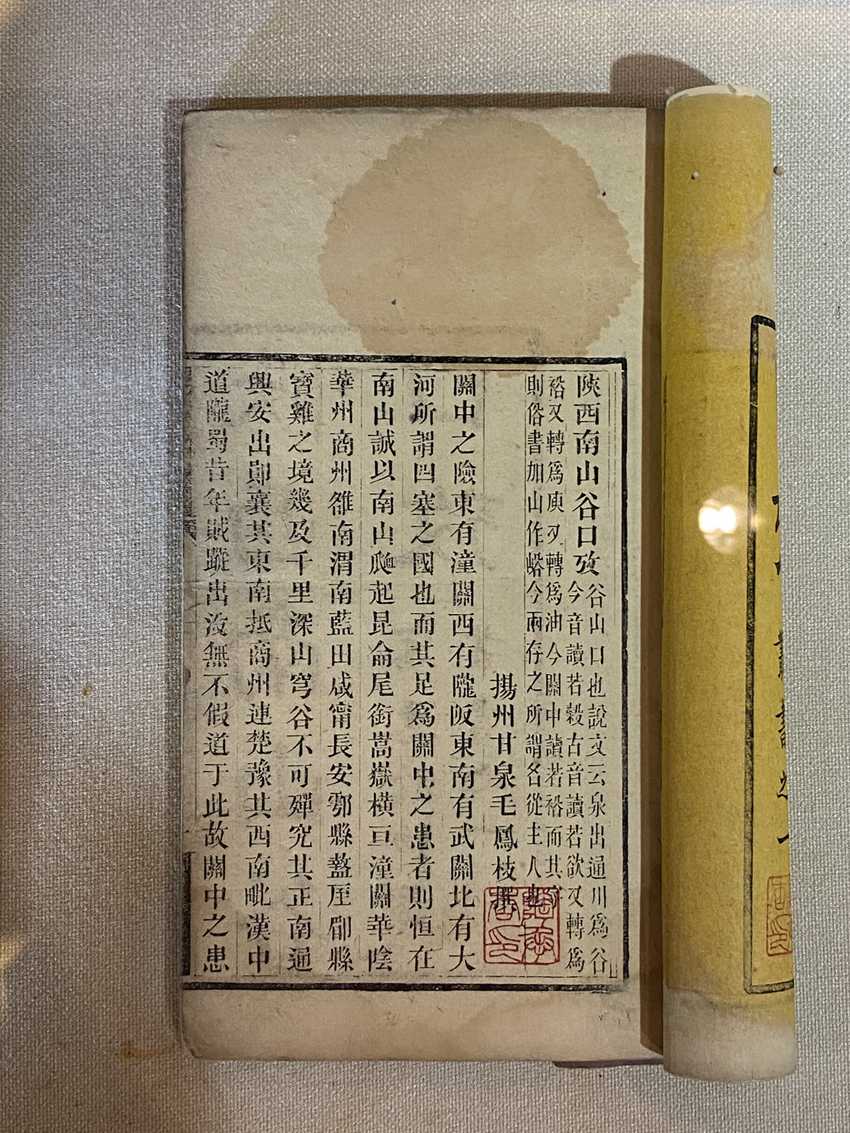 陝西南山谷口攷
谷山口也說文云泉出通川爲谷
今音讀若穀古音讀若欲又轉爲
裕又轉爲庾又轉爲油今關中讀若裕而其字
則俗書加山作峪今兩存之所謂名從主人也
揚州甘泉毛鳳枝撰
關中之險東有潼關西有隴阪東南有武關北有大
河所謂四塞之國也而其足爲關中之患者則恒在
南山誠以南山爬起昆侖尾銜嵩嶽橫亘潼關華陰
華州商州雒南渭南藍田咸甯長安鄠縣盩厔郿縣
寶雞之境幾及千里深山穹谷不可殫究其正南通
興安出鄖襄其東南抵商州連楚豫其西南毗漢中
道隴蜀昔年賊蹤出沒無不假道于此故關中之患